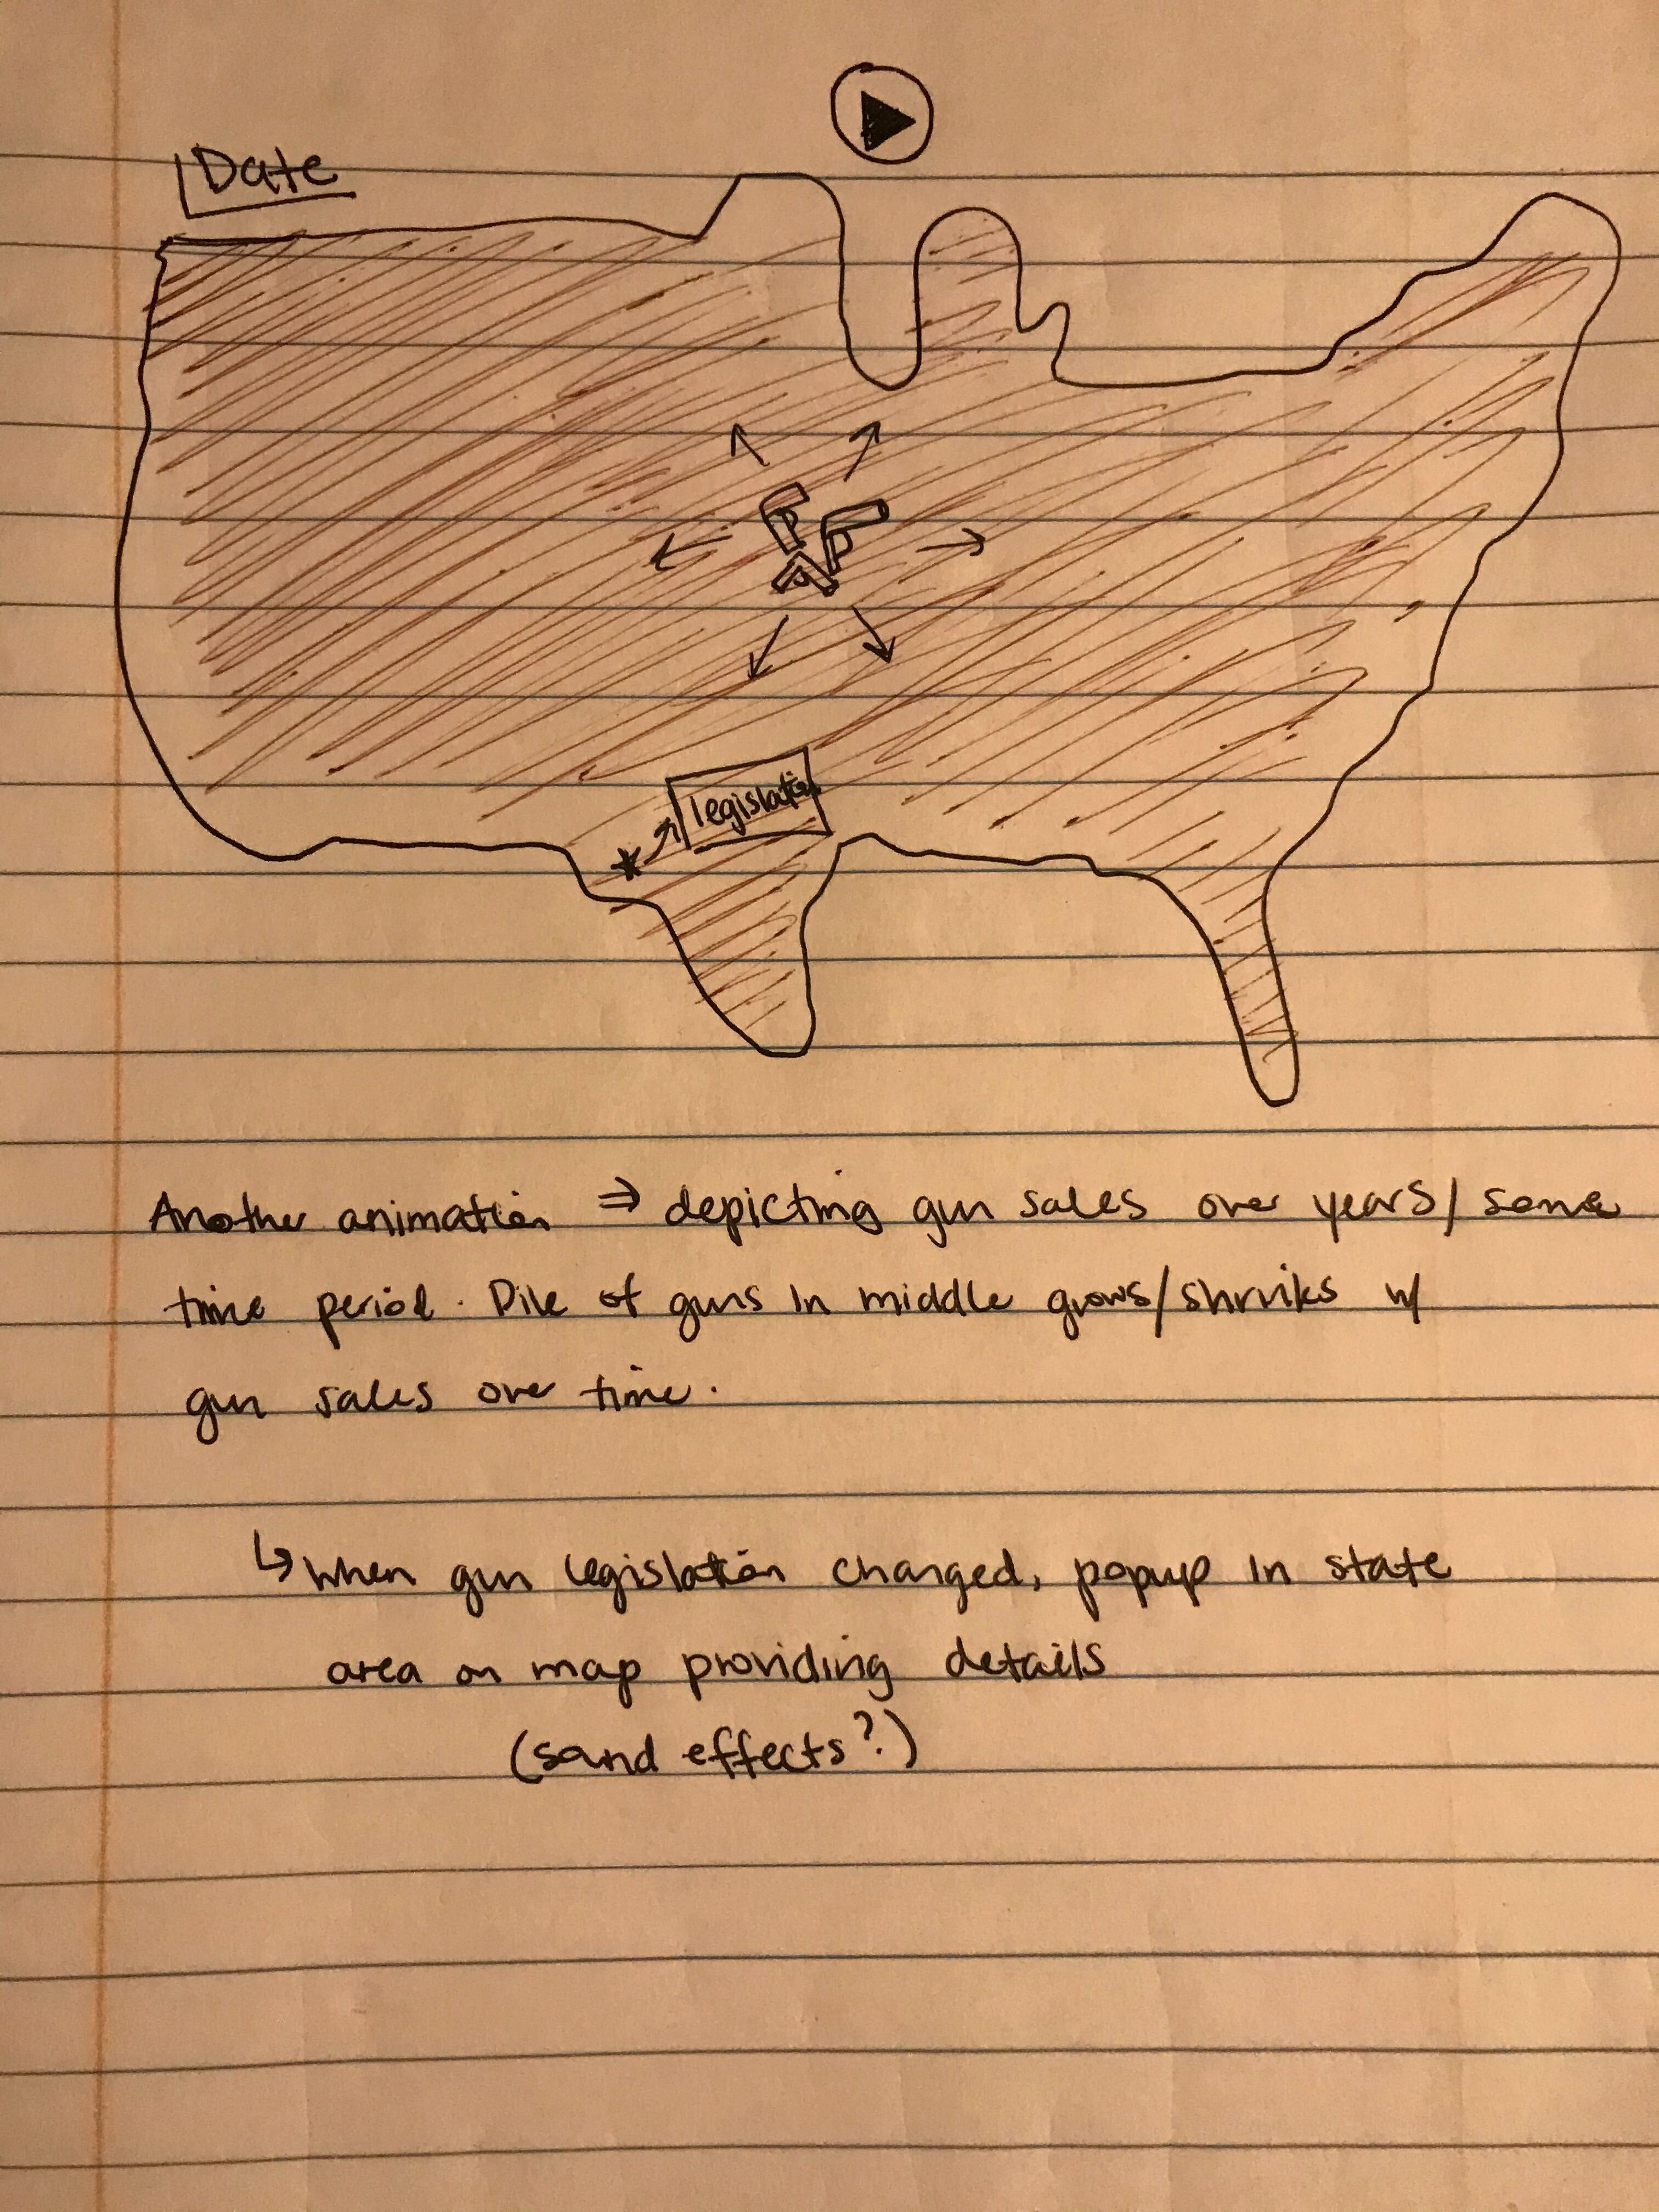 Date
legislation
Another animation ⇒ depicting gun sales over years/ some
time period. Pile of guns in middle grows/shrinks w/
gun sales over time.
↳ when gun legislation changed, popup in state
area on map providing details
(sound effects?)